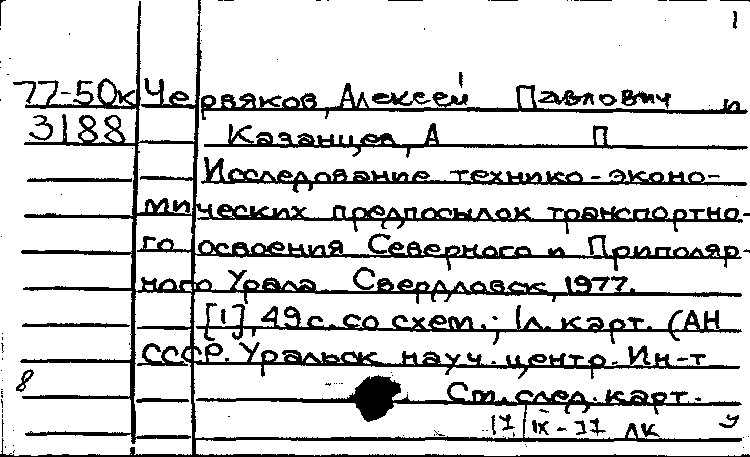 1
77-50к Червяков, Алексей Павлович и
3188 Казанцев, А П
Исследование технико-эконо-
мических предпосылок транспортно-
го освоения Северного и Приполяр-
ного Урала. Свердловск, 1977.
[1], 49 с. со схем.; 1 л. карт. (АН
СССР. Уральск науч. центр. Ин-т
8 См. след. карт.
17/IX-77 ЛК У